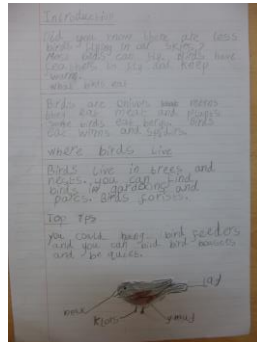 Introduction
Did you know there are less
birds flying in our skies?
Most birds can fly. Birds have
feathers to fly and keep
warm.
what birds eat
Birds are
they eat meat and plants
Some birds eat berrys. Birds
eat worms and spiders.
where birds live
Birds live in trees and
nests. you can find
birds in gardens and
parks. Birds
Top Tips
you could hang bird feeders
and you can bild bird houses
and be quiet.